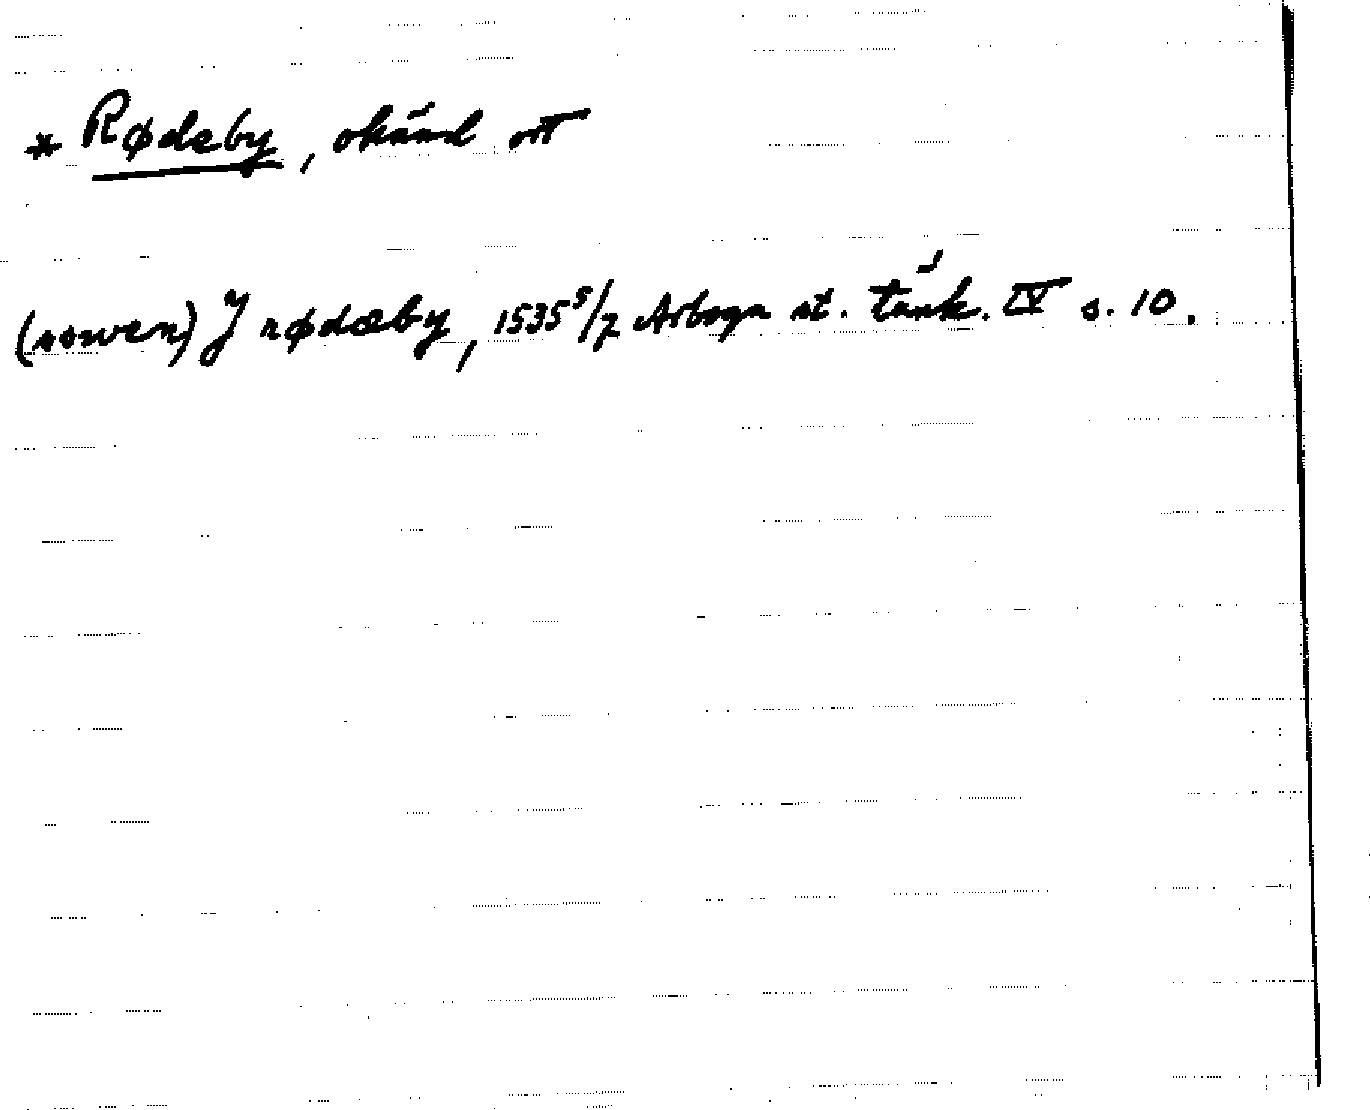 * Rødeby, okänd ort
(rowen) J rødæby, 1535 5/7 Arboga st. tänk. IV s. 10.